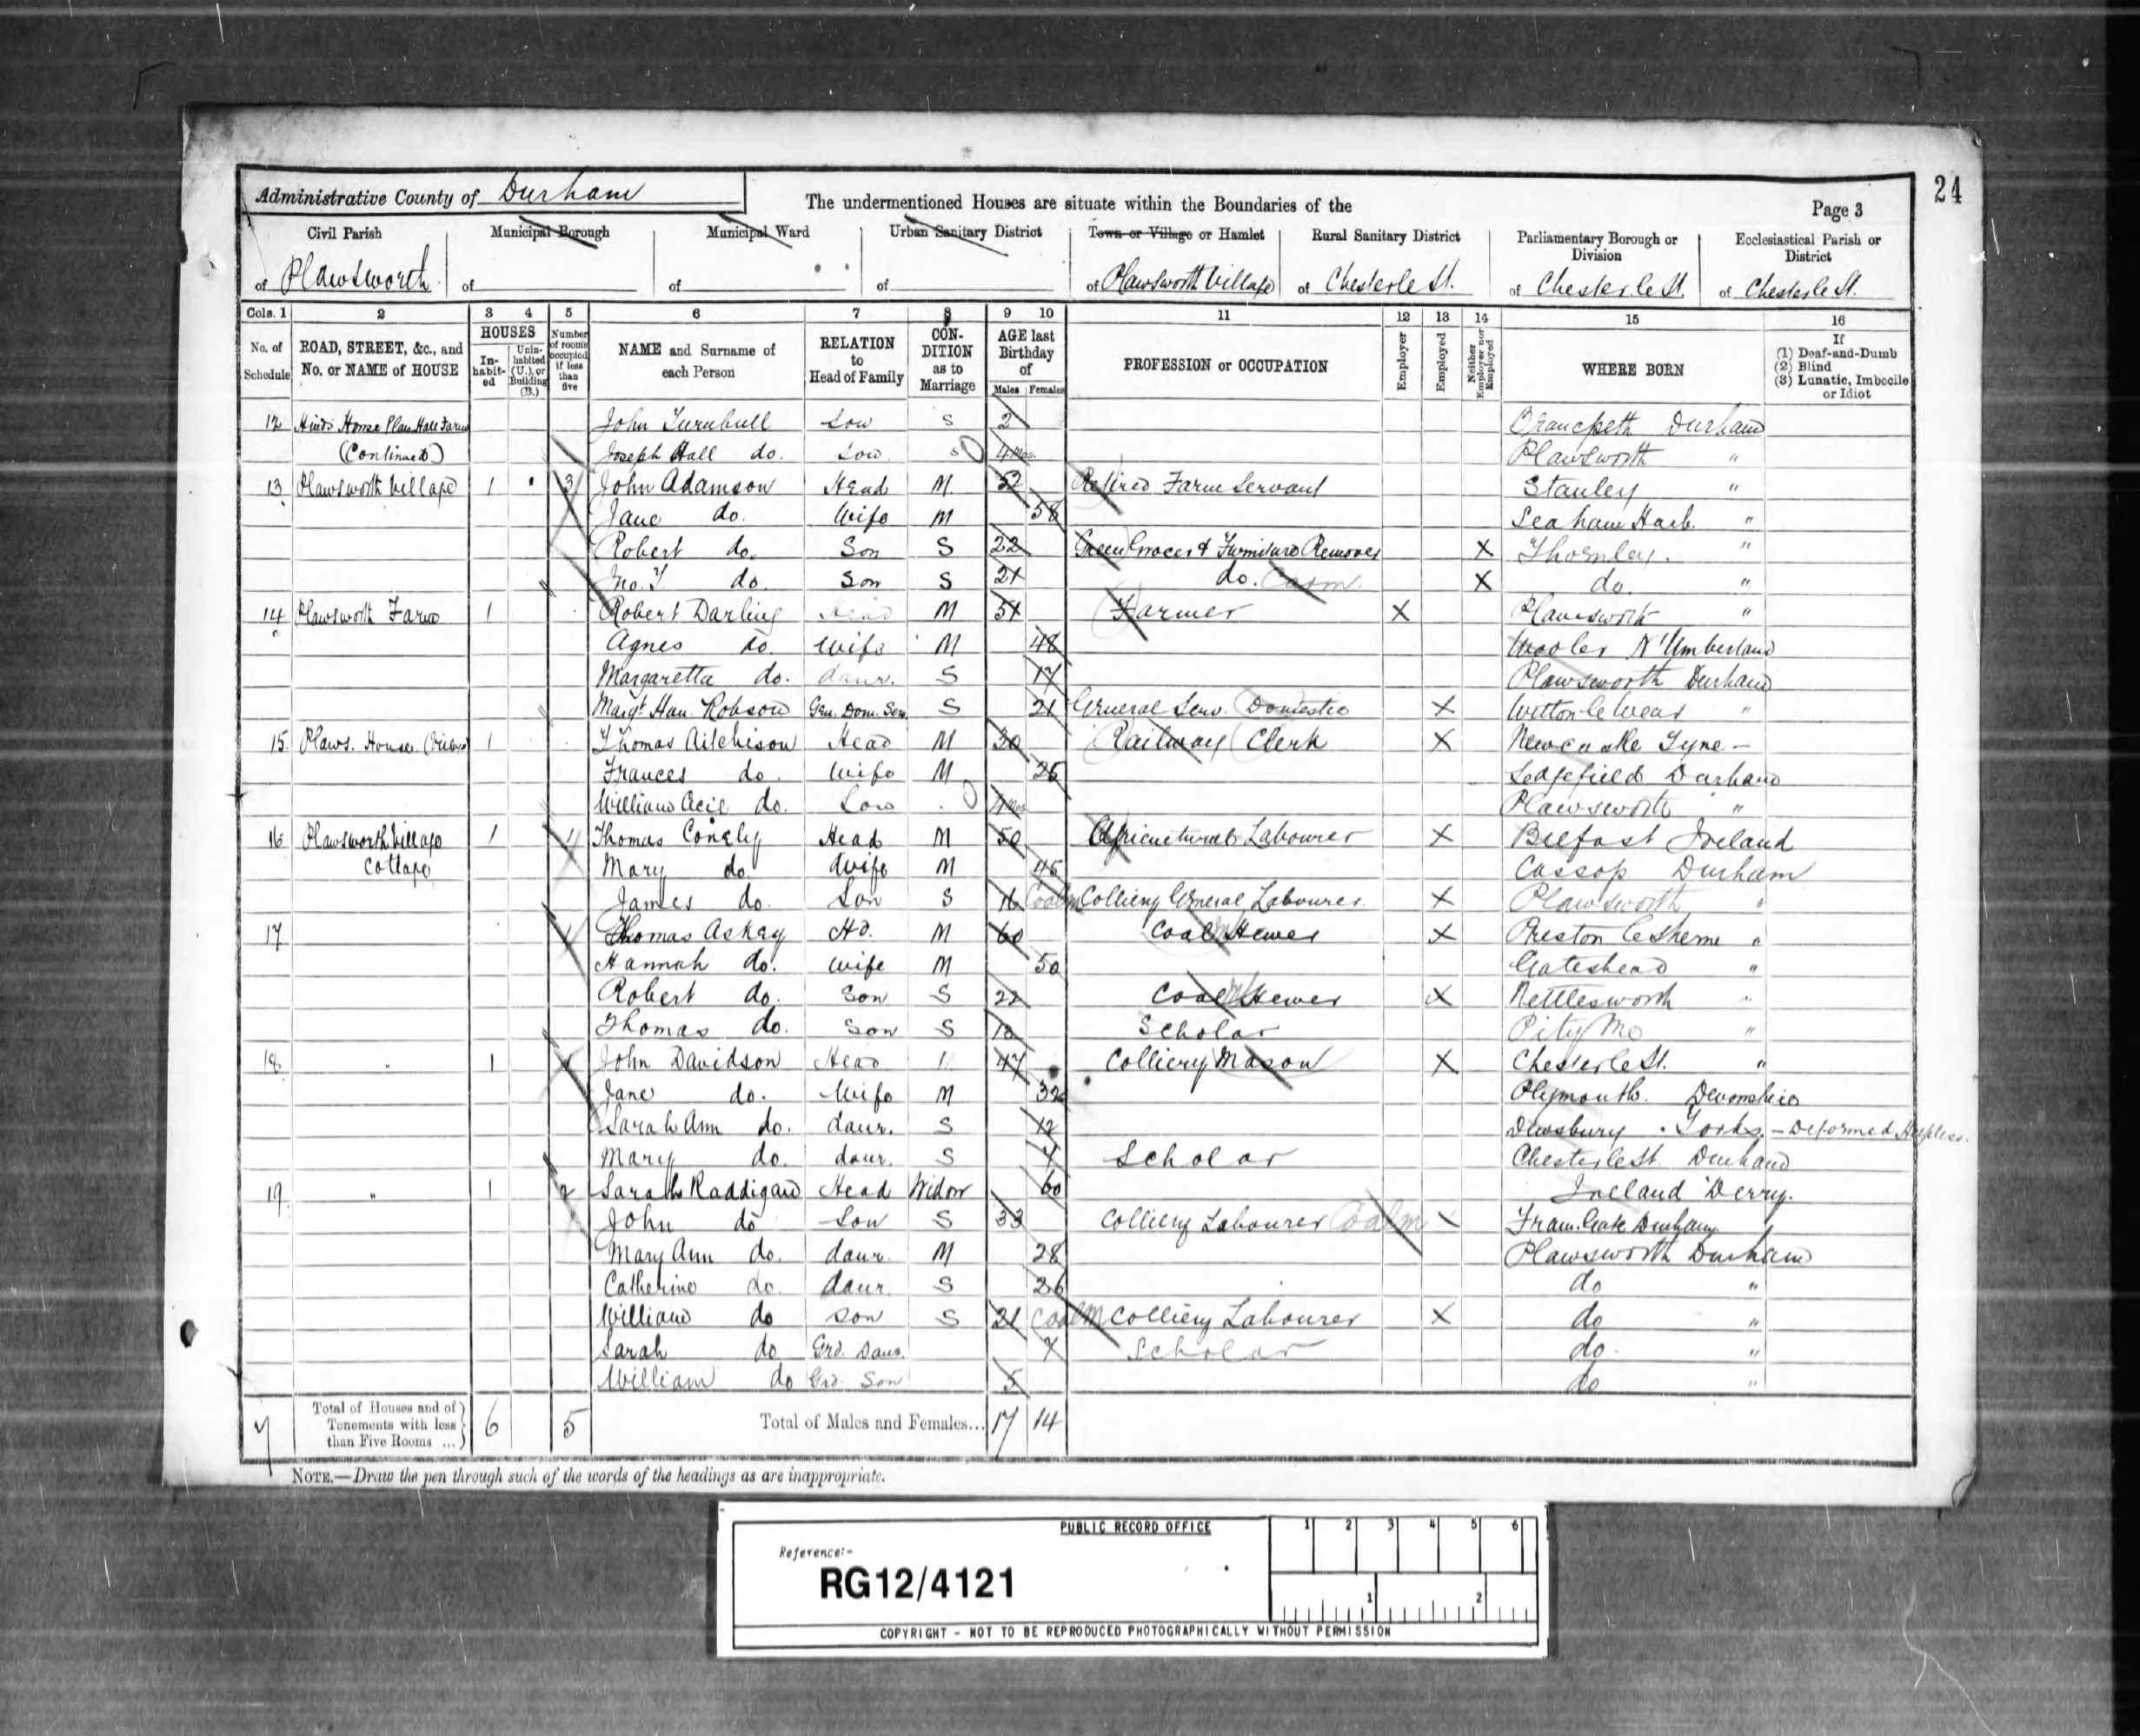 24
Administrative County of Durham
The undermentioned Houses are situate within the Boundaries of the
Page 3
Civil Parish of Plawsworth
Municipal Borough of
Municipal Ward of
Urban Sanitary District of
Town or Village or Hamlet of Plawsworth Village
Rural Sanitary District of Chesterle St.
Parliamentary Borough or Division of Chester le St.
Ecclesiastical Parish or District of Chesterle St.
Cols. 1 2 3 4 5 6 7 8 9 10 11 12 13 14 15 16
No. of Schedule
ROAD, STREET, &c., and No. or NAME of HOUSE
HOUSES
Inhabited
Uninhabited (U.), or Building (B.)
Number of rooms occupied if less than five
NAME and Surname of each Person
RELATION to Head of Family
CONDITION as to Marriage
AGE last Birthday of
Males Females
PROFESSION or OCCUPATION
Employer
Employed
Neither Employer nor Employed
WHERE BORN
If (1) Deaf-and-Dumb (2) Blind (3) Lunatic, Imbecile or Idiot
12 Hinds House Plaw. Hall Farm John Turnbull Son S 2 Brancpeth Durham
(Continued) Joseph Hall do. Son S 4 Mos. Plawsworth "
13 Plawsworth Village 1 3 John Adamson Head M 52 Retired Farm Servant Stanley "
Jane do. Wife M 58 Seaham Harb. "
Robert do. Son S 22 Green Grocer & Furniture Remover X Thornley. "
Jno. T do. Son S 21 do. X do. "
14 Plawsworth Farm 1 Robert Darling Head M 51 Farmer X Plawsworth "
Agnes do. Wife M 48 Wooler N'Umberland
Margaretta do. daur. S 17 Plawsworth Durham
Margt Han. Robson Gen. Dom. Serv. S 21 General Serv. Domestic X Witton le Wear "
15 Plaws. House 1 Thomas Aitchison Head M 30 Railway Clerk X Newcastle Tyne -
Frances do. Wife M 26 Sedgefield Durham
William do. Son 4 Mos. Plawsworth "
16 Plawsworth Village 1 4 Thomas Conely Head M 50 Agricultural Labourer X Belfast Ireland
Cottage Mary do. Wife M 45 Cassop Durham
James do. Son S 16 Coal m Colliery General Labourer X Plawsworth "
17 Thomas Askey Hd. M 60 Coal Hewer X Preston le Skerne "
Hannah do. Wife M 50 Gateshead "
Robert do. Son S 22 Coal Hewer X Nettlesworth "
Thomas do. Son S Scholar Pity Me "
18 " 1 4 John Davidson Head 47 Colliery Mason X Chesterle St. "
Jane do. Wife M 32 Plymouth. Devonshire
Sarah Ann do. daur. S 12 Dewsbury. Yorks. - Deformed Helpless.
Mary do. daur. S 7 Scholar Chesterle St. Durham
19 " 1 2 Sarah Raddigan Head Widow 60 Ireland Derry.
John do Son S 33 Colliery Labourer Coal m Fram. Gate Durham
Mary Ann do. daur. M 28 Plawsworth Durham
Catherine do. daur. S 26 do "
William do Son S 21 Coal m Colliery Labourer X do "
Sarah do Grd. Daur. 7 Scholar do. "
William do Grd. Son 5 do "
7 Total of Houses and of Tenements with less than Five Rooms ... 6 5 Total of Males and Females... 17 14
NOTE.—Draw the pen through such of the words of the headings as are inappropriate.
PUBLIC RECORD OFFICE
1 2 3 4 5 6
Reference:-
RG12/4121
1 2
COPYRIGHT - NOT TO BE REPRODUCED PHOTOGRAPHICALLY WITHOUT PERMISSION